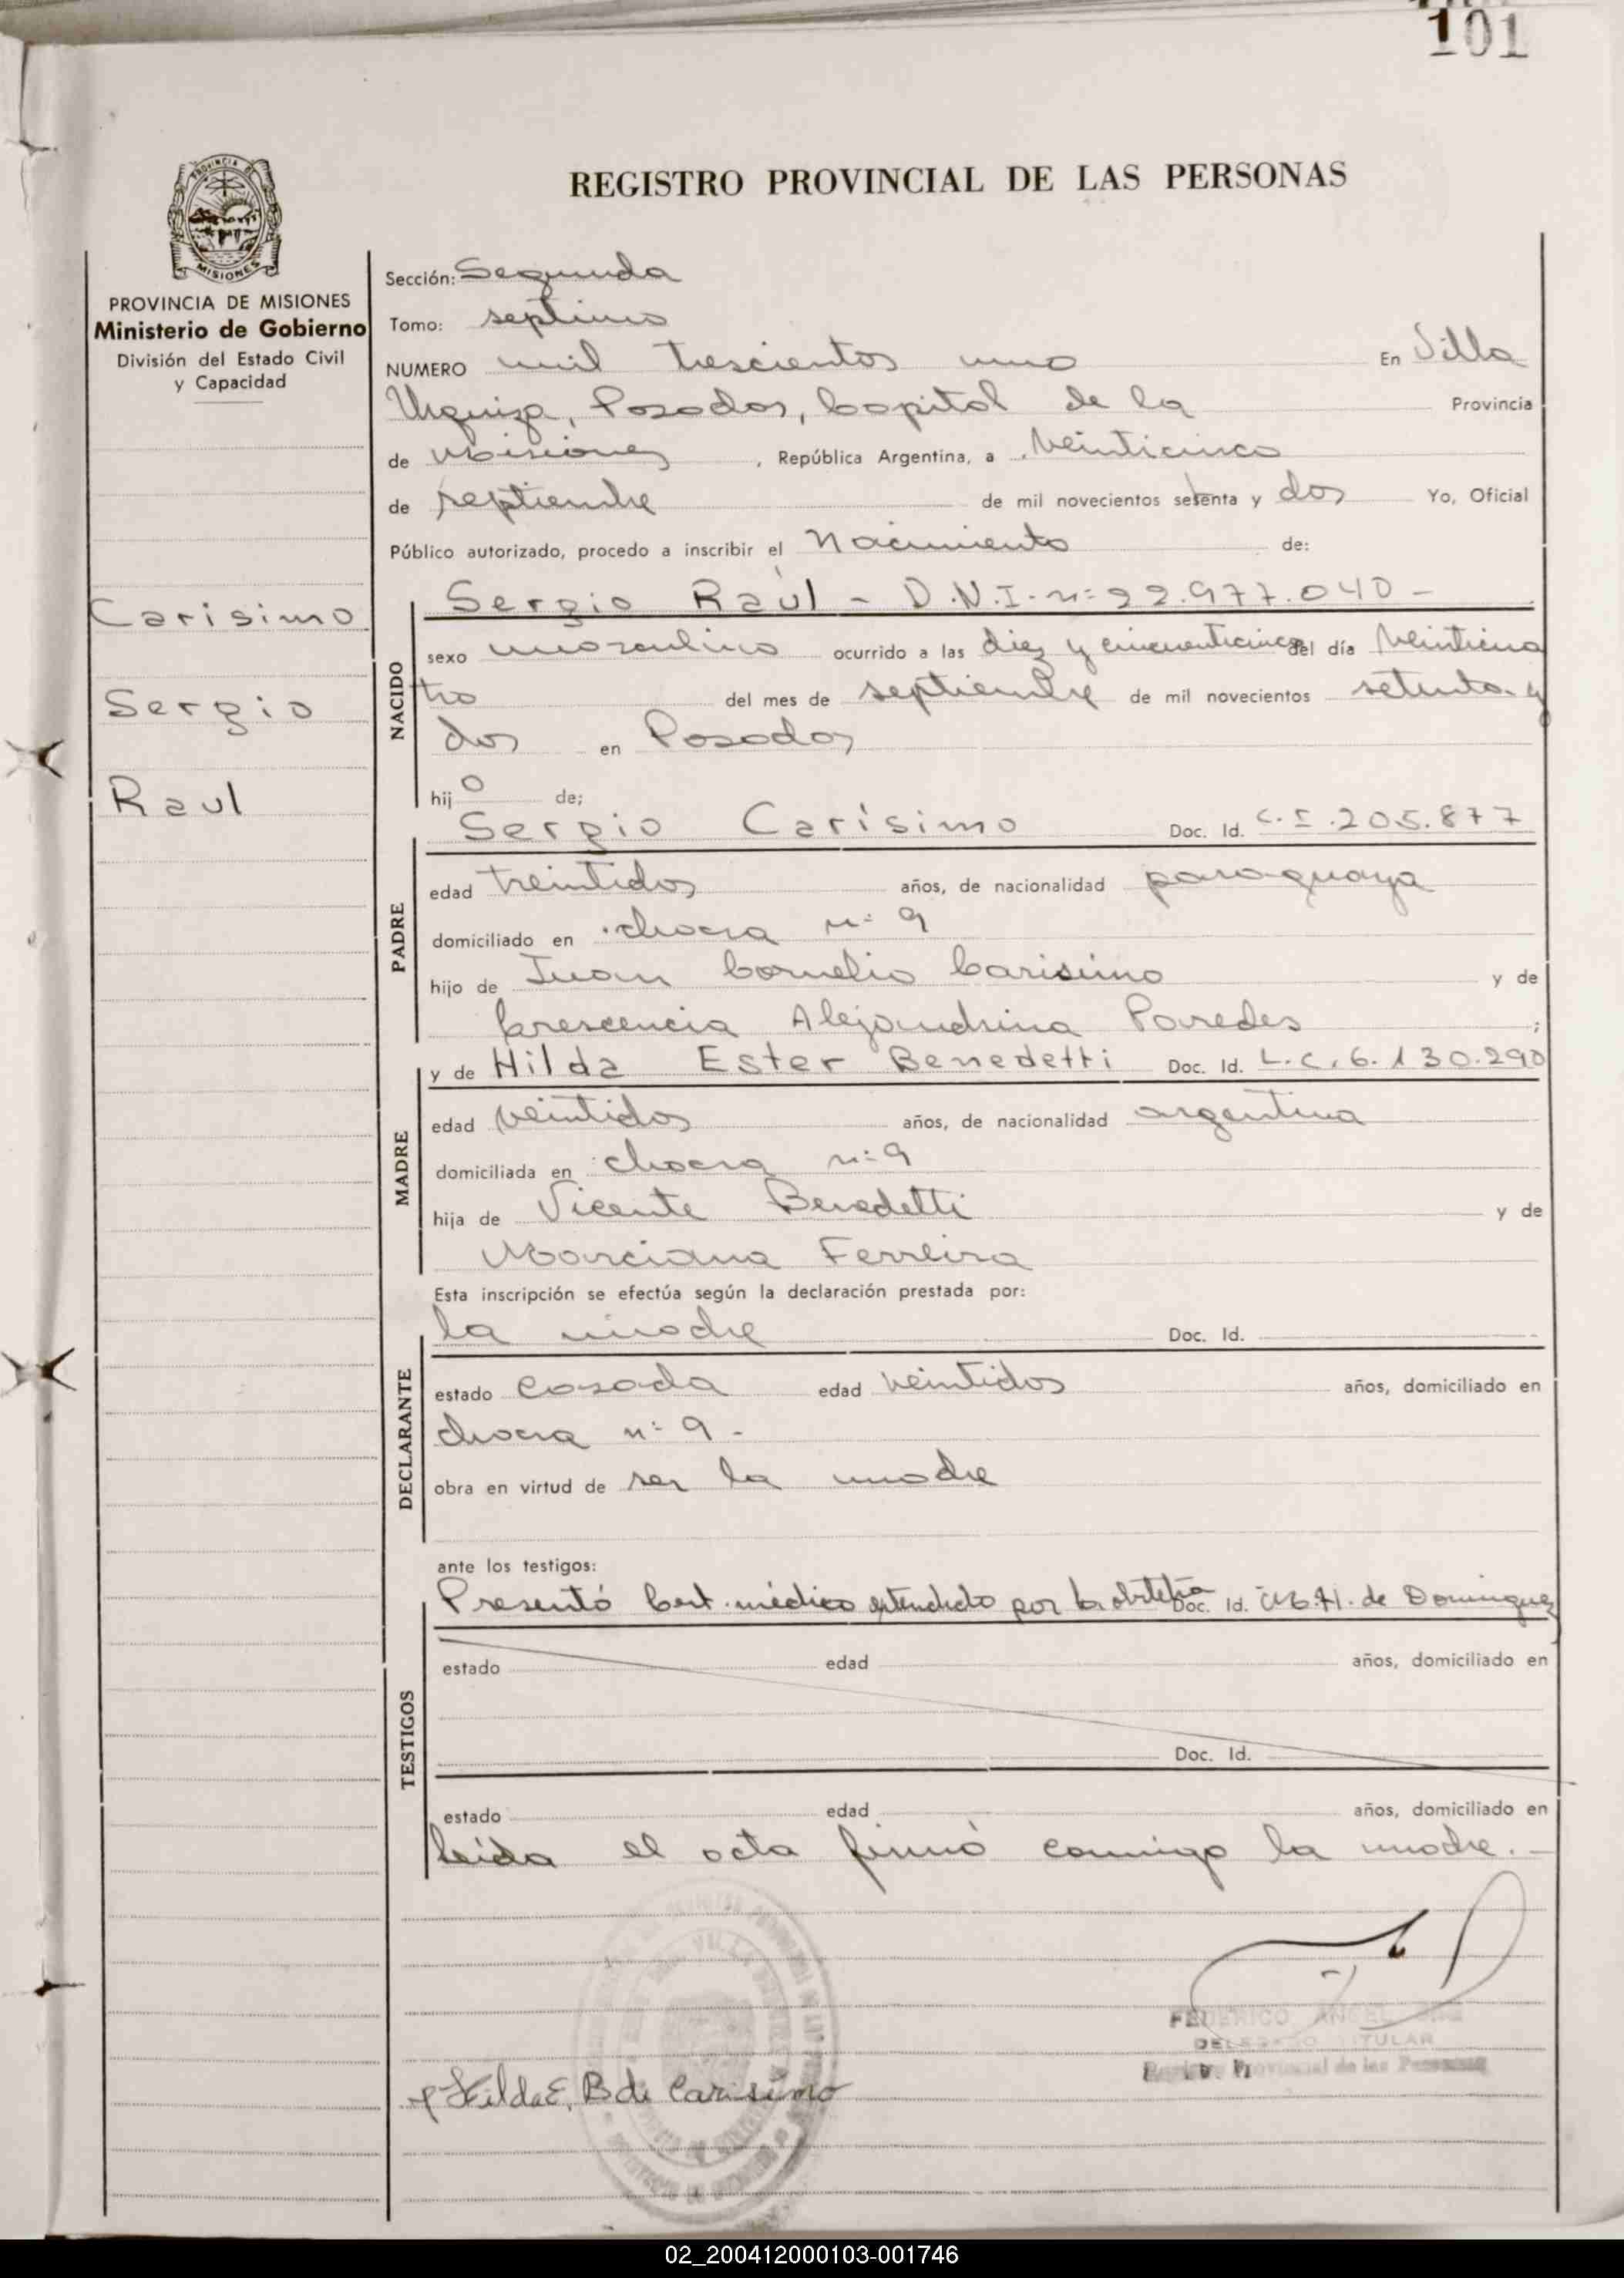 101
PROVINCIA DE
MISIONES
REGISTRO PROVINCIAL DE LAS PERSONAS
PROVINCIA DE MISIONES
Ministerio de Gobierno
División del Estado Civil
y Capacidad
Carisimo
Sergio
Raul
Sección: Segunda
Tomo: septimo
NUMERO mil trescientos uno En Villa
Urquiza, Posadas, Capital de la Provincia
de Misiones, República Argentina, a veinticinco
de septiembre de mil novecientos setenta y dos Yo, Oficial
Público autorizado, procedo a inscribir el Nacimiento de:
NACIDO
Sergio Raúl - D.N.I. nº 22.977.040 -
sexo masculino ocurrido a las diez y cincuenticinco del día veinticua
tro del mes de septiembre de mil novecientos setenta y
dos en Posadas
hijo de;
PADRE
Sergio Carísimo Doc. Id. C.I. 205.877
edad treintidos años, de nacionalidad paraguaya
domiciliado en chacra nº 9
hijo de Juan Cornelio Carisimo y de
Crescencia Alejandrina Paredes ;
MADRE
y de Hilda Ester Benedetti Doc. Id. L.C. 6.130.290
edad veintidos años, de nacionalidad argentina
domiciliada en chacra nº 9
hija de Vicente Benedetti y de
Marciana Ferreira
Esta inscripción se efectúa según la declaración prestada por:
DECLARANTE
la madre Doc. Id.
estado casada edad veintidos años, domiciliado en
chacra nº 9 -
obra en virtud de ser la madre
ante los testigos:
TESTIGOS
Presentó Cert. médico extendido por la obstetra Doc. Id. M.H. de Dominguez
estado edad años, domiciliado en
Doc. Id.
estado edad años, domiciliado en
leída el acta firmó conmigo la madre. -
FEDERICO ANGEL
DELEGADO TITULAR
Registro Provincial de las Personas
Hilda E. B de Carisimo
02_200412000103-001746